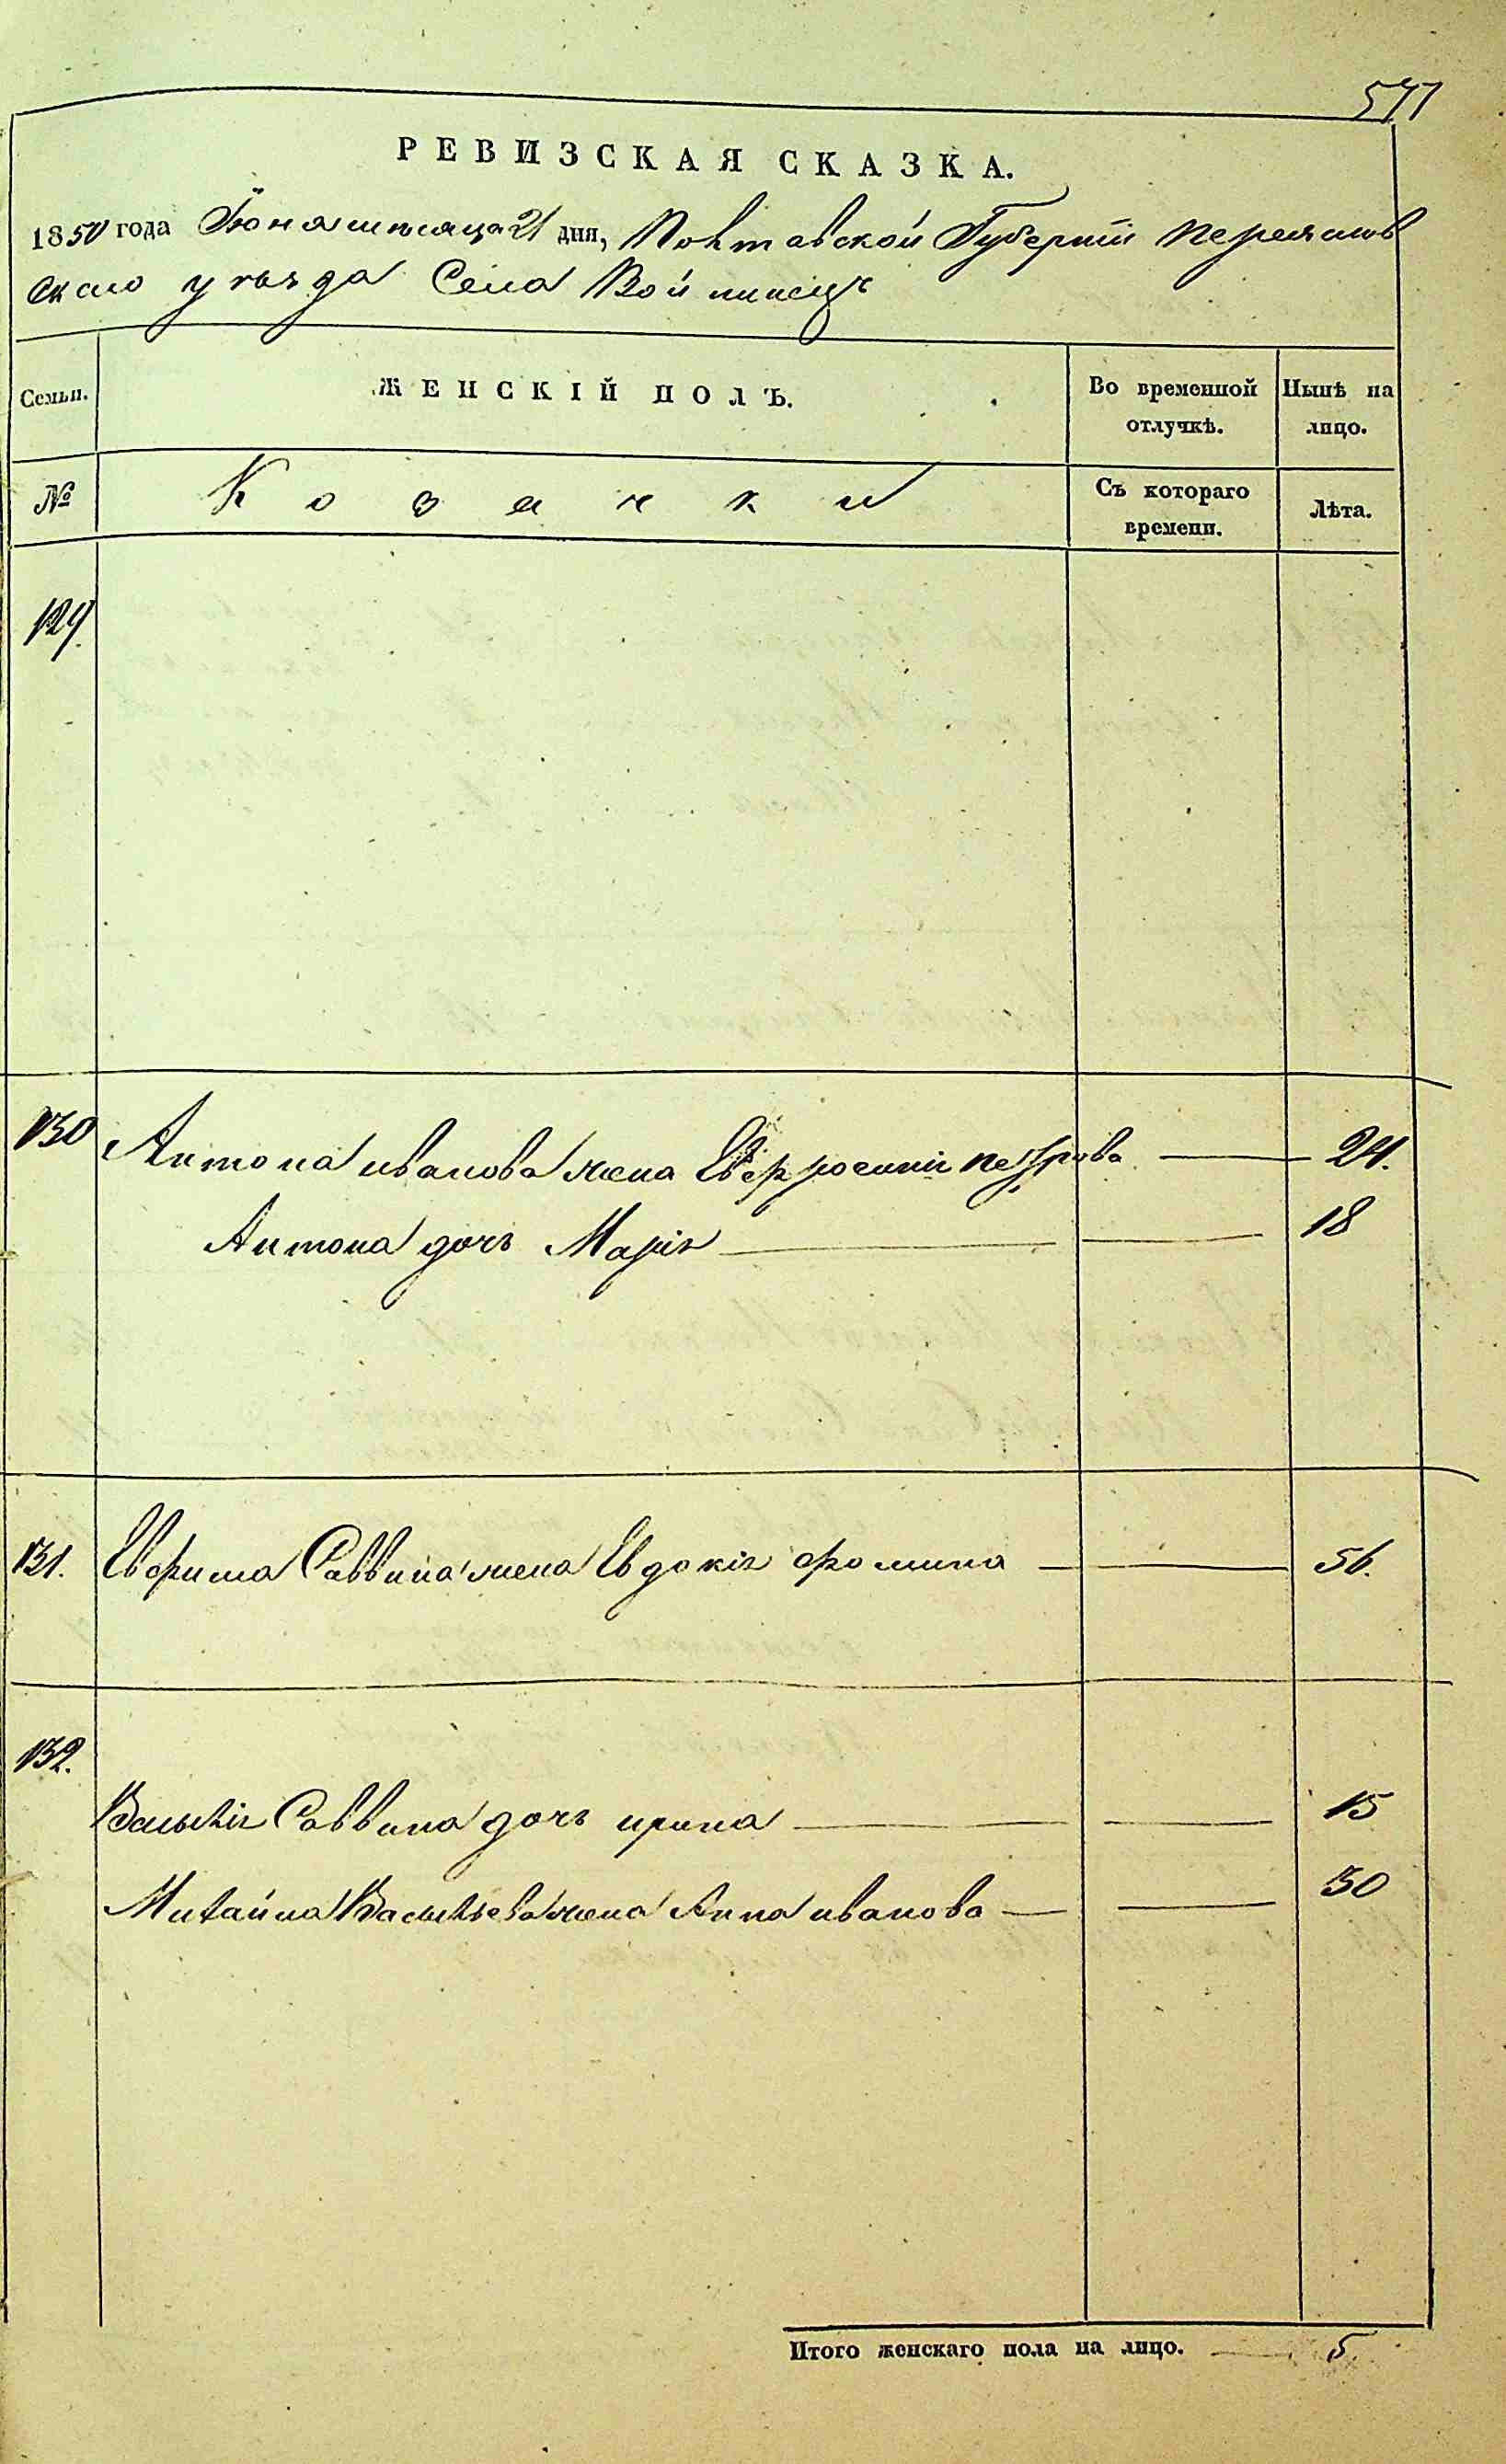 571
РЕВИЗСКАЯ СКАЗКА.
1850 года Іюня мѣсяца 21 дня, Полтавской Губерніи Переяслов
скаго уѣзда Села Войнинецъ
Семьи.
ЖЕНСКІЙ ПОЛЪ.
Во временной отлучкѣ.
Нынѣ на лицо.
№
Козачки
Съ котораго времени.
Лѣта.
129.
130 Антона иванова жена Евфросинія петрова 24.
Антона дочь Марія 18
131. Ефима Саввина жена Евдокія фомина 56.
132.
Василія Саввина дочь ирина 15
Михайла Васильева жена Анна иванова 30
Итого женскаго пола на лицо. 5.